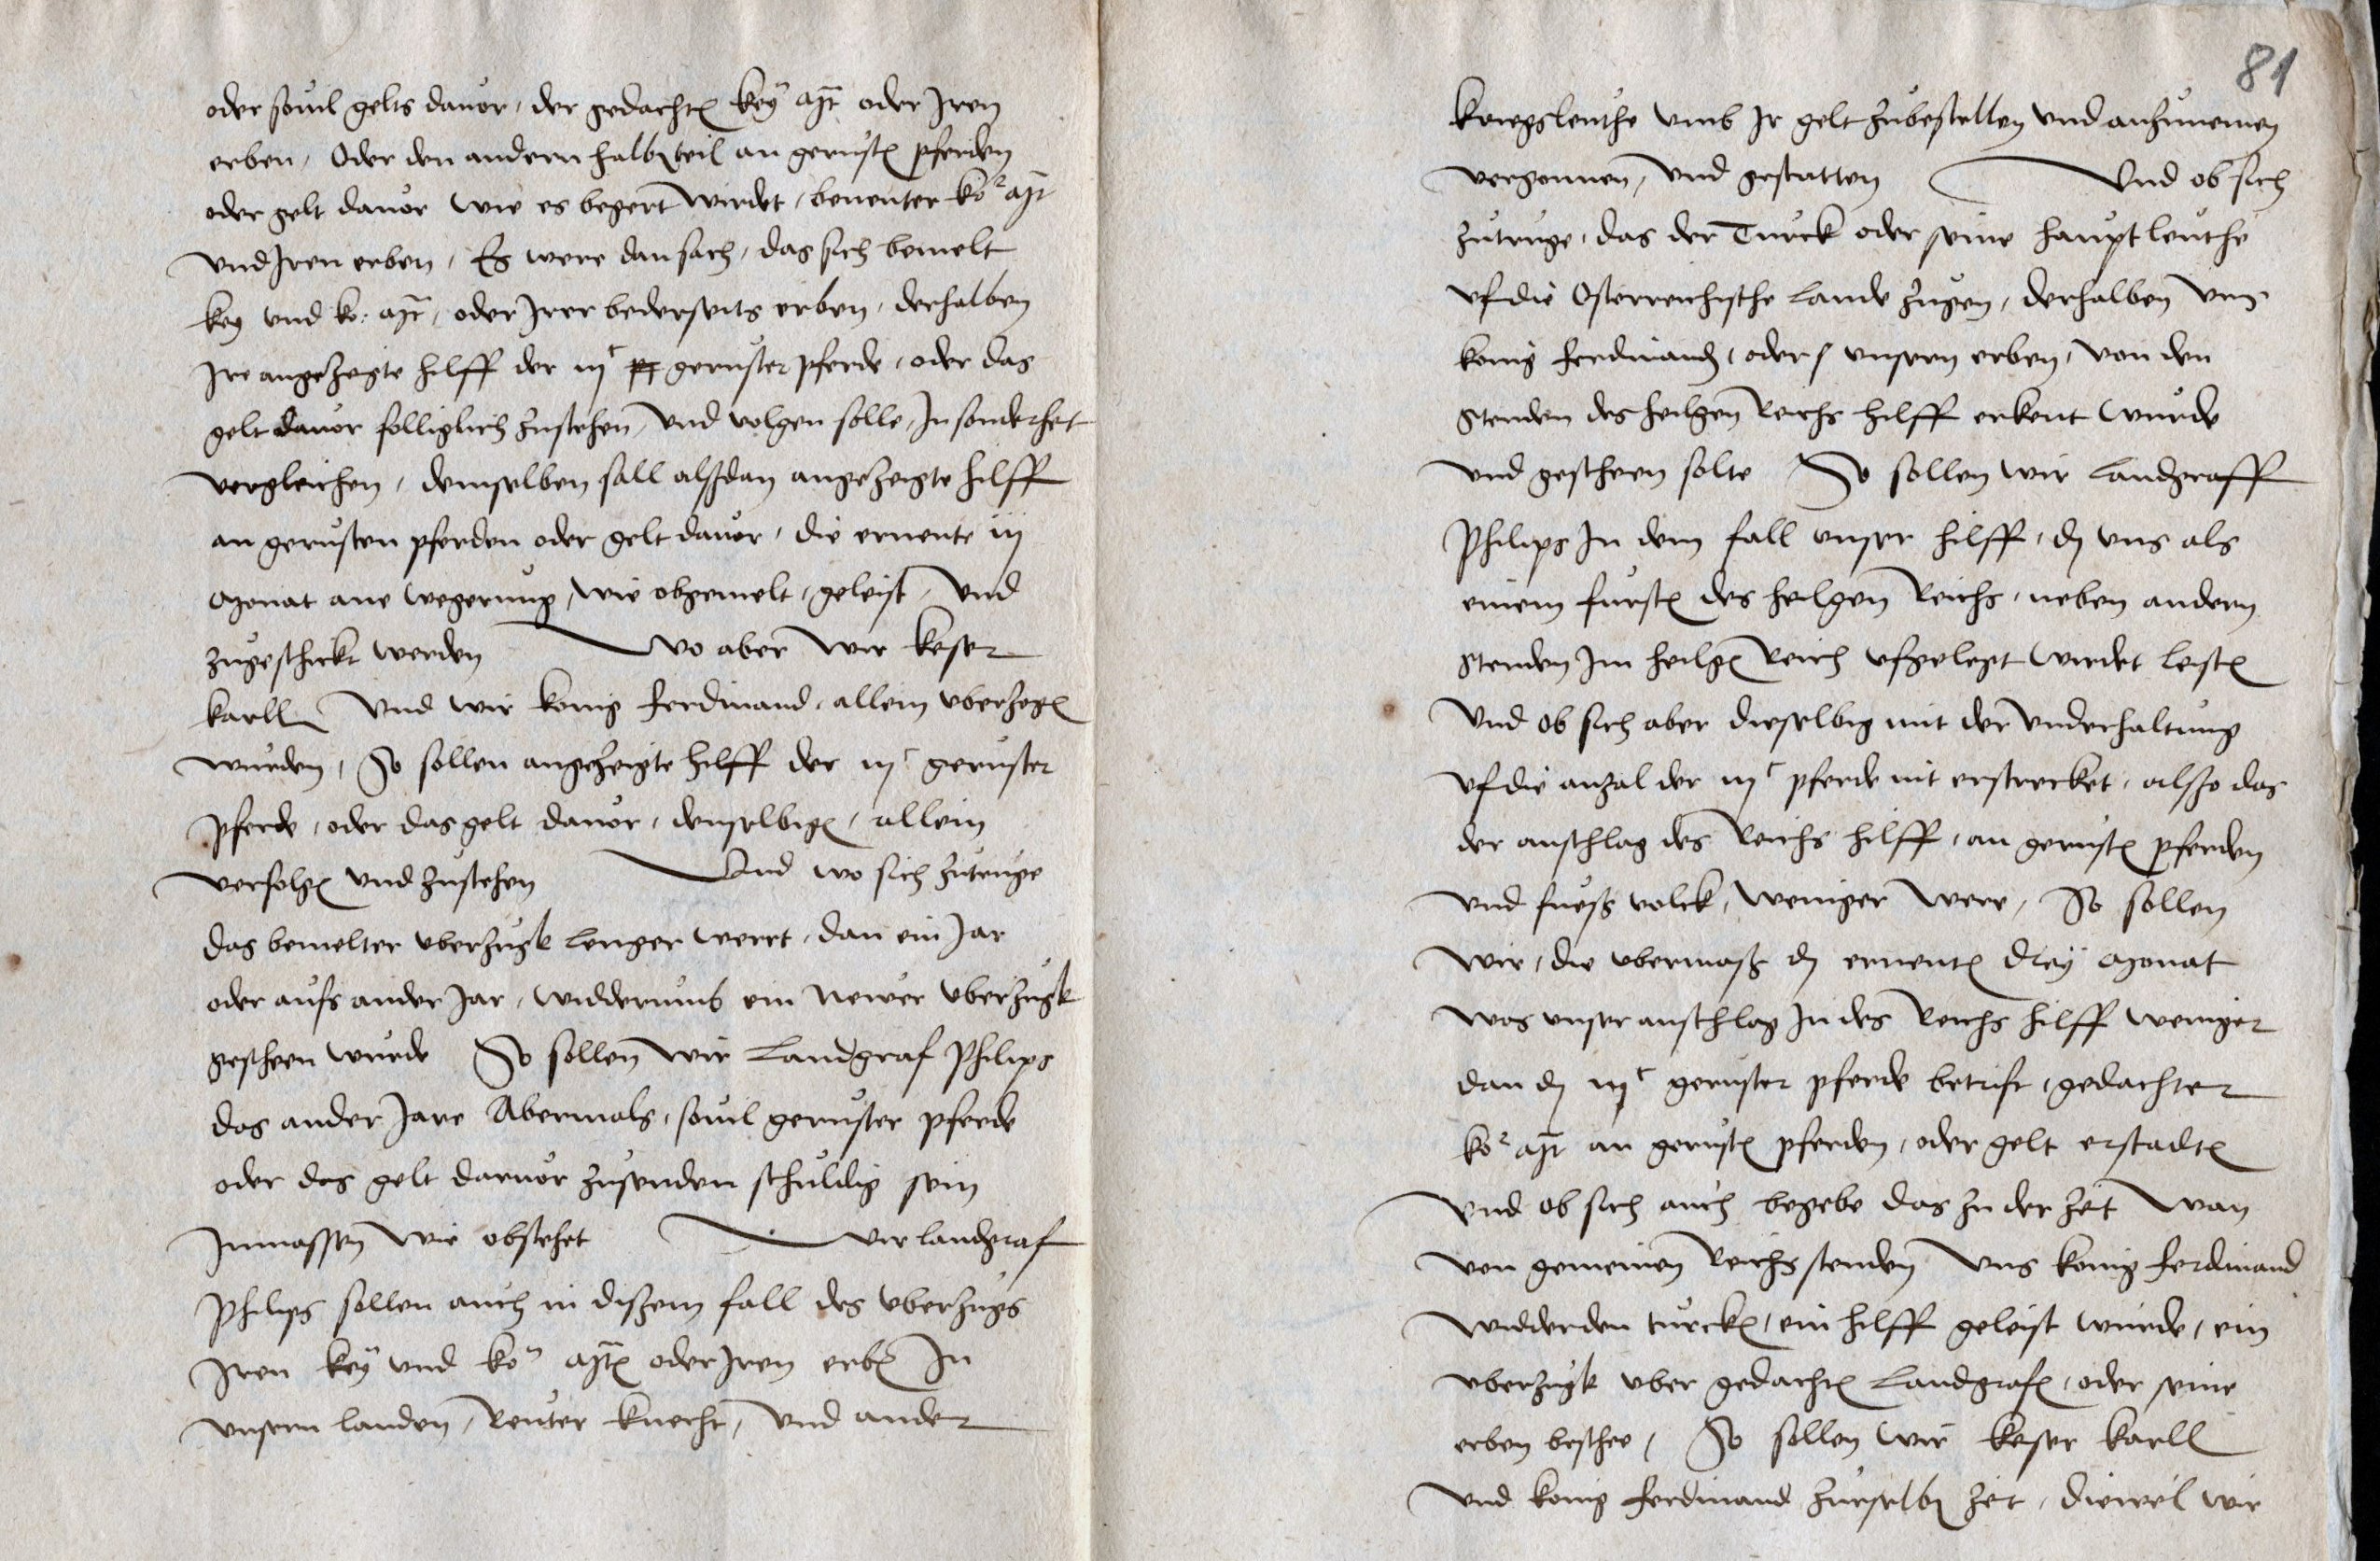 oder souil gelts dauor, der gedachten key mt oder Iren
erben, Oder den andern halben teil an gerusten pferden
oder gelt dauor wie es begert wirdet, benenter ko r mt
vnd Iren erben, Es were dan sach, das sich bemelt
key vnd ko: mt, oder Irer bederseits erben, derhalben
Ire angezeigte hilff der iijc geruster pferde, oder das
gelt dauor folliglich zustehen, vnd volgen solle, In sonderhet
vergleichen, demselben sall alsdan angezeigte hilff
an gerusten pferden oder gelt dauor, die ernente iij
Monat ane wegerung, wie obgemelt, geleist, vnd
zugeschickt werden Wo aber wir keser
karll vnd wir konig ferdinand, allein vberzogen
wurden, So sollen angezeigte hilff der iijc geruster
pferde, oder das gelt dauor, denselbigen, allein
verfolgen vnd zustehen Vnd wo sich zutruge
das bemelter vberzugk lenger weret, dan ein Jar
oder aufs ander Jar, widderumb ein newer vberzugk
gescheen wurde So sollen wir Landgraf Philips
das ander Jare Abermals, souil geruster pferde
oder das gelt daruor zusenden schuldig sein
Inmassen wie obstehet Wir landgraf
Philips sollen auch in dissem fall des vberzugs
Iren key vnd ko n mten oder Iren erben In
vnsern landen, Reuter knecht, vnd ander
81
kriegsleuthe vmb Ir gelt zubestellen vnd anzunemen
vergonnen, vnd gestatten Vnd ob sich
zutruge, das der Turck oder seine hauptleuthe
vf die Osterreichische lande zugen, derhalben vns
konig ferdinanden, oder vnsern erben, von den
Stenden des heilgen Reichs hilff erkent wurde
vnd gescheen solte So sollen wir Landgraff
Philips In dem fall vnser hilff, die vns als
einem fursten des heilgen Reichs, neben andern
Stenden Im heilgen Reich vfgelegt wirdet leisten
Vnd ob sich aber dieselbig mit der vnderhaltung
vf die anzal der iijc pferde nit erstrecket, also das
der anschlag des Reichs hilff, an gerusten pferden
vnd fuess volck, weniger were, So sollen
wir, die vbermass die ernenten drey Monat
was vnser anschlag In des Reichs hilff weniger
dan die iijc geruster pferde betrift, gedachter
ko r mt an gerusten pferden, oder gelt erstadten
Vnd ob sich auch begebe das zu der zeit wan
von gemeinen Reichsstenden vns konig ferdinand
widder den turcken, ein hilff geleist wurde, ein
vberzugk vber gedachten Landgrafen, oder seine
erben beschee, So sollen wir keser karll
vnd konig ferdinand zurselben zeit, dieweil wir